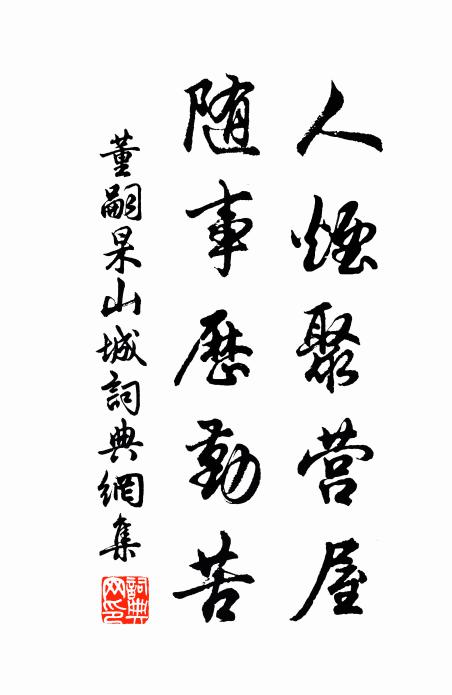 人煙聚营屋
随事歷勤苦
董嗣杲山城詞典網集
詞典网印